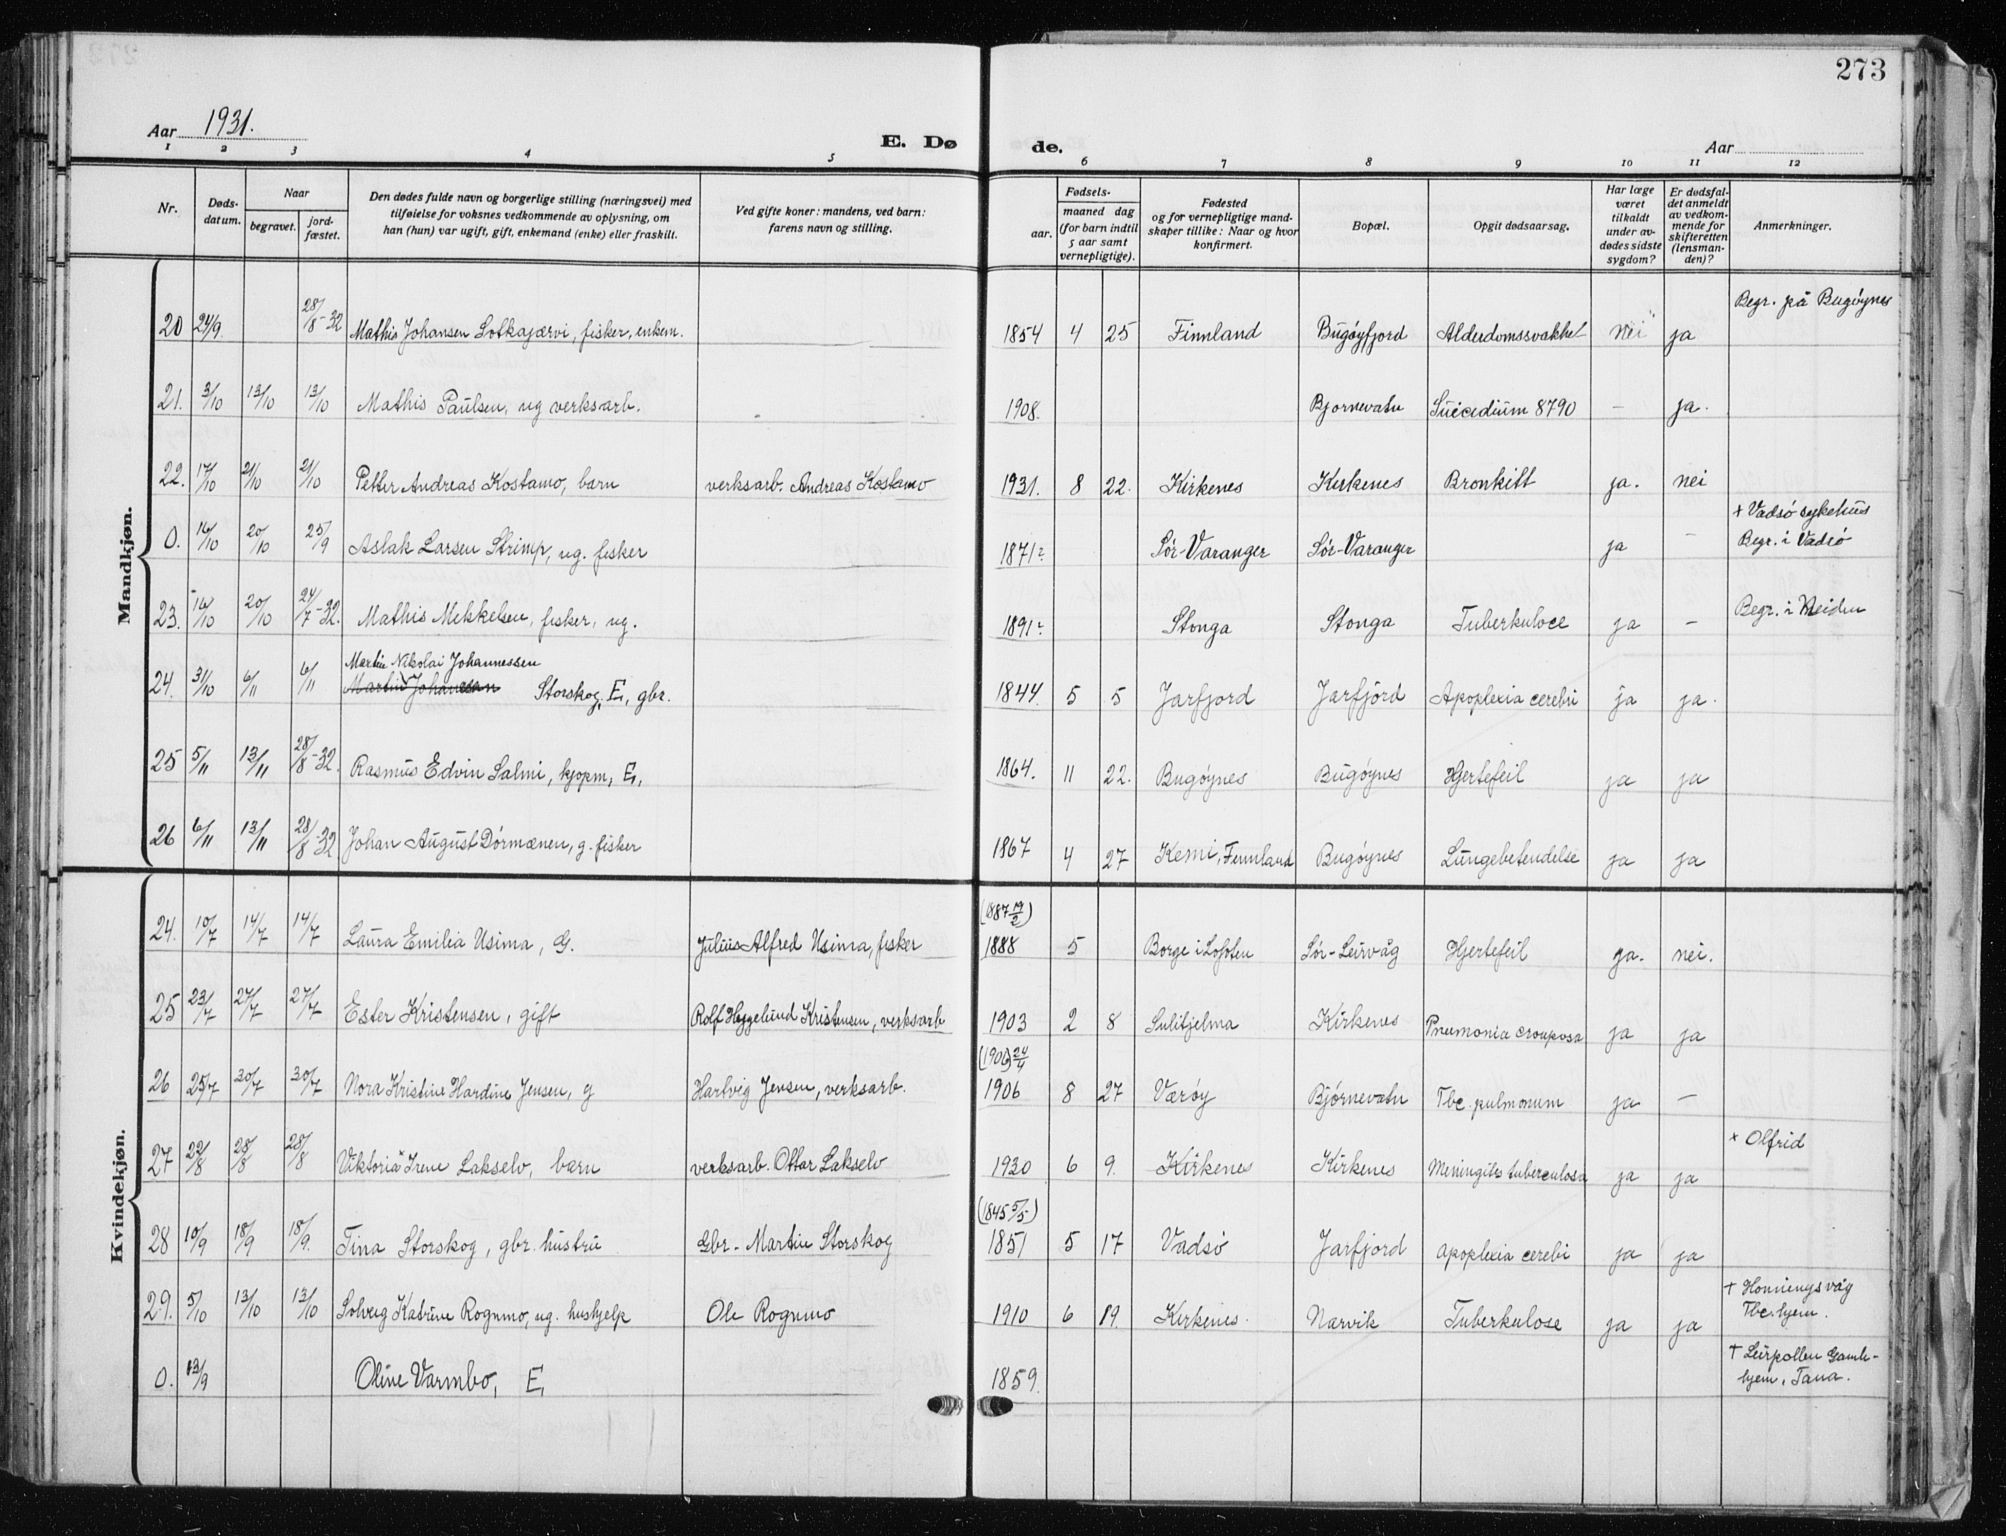 273
Aar 1931. E. Dø de. Aar
1 2 3 4 5 6 7 8 9 10 11 12
Nr. Døds-datum. Naar begravet. jord-fæstet. Den dødes fulde navn og borgerlige stilling (næringsvei) med tilføielse for voksnes vedkommende av oplysning, om han (hun) var ugift, gift, enkemand (enke) eller fraskilt. Ved gifte koner: mandens, ved barn: farens navn og stilling. Fødsels- aar. maaned dag (for barn indtil 5 aar samt vernepligtige). Fødested og for vernepligtige mand-skaper tillike: Naar og hvor konfirmert. Bopæl. Opgit dødsaarsag. Har læge været tilkaldt under av-dødes sidste sygdom? Er dødsfal-det anmeldt av vedkom-mende for skifteretten (lensman-den)? Anmerkninger.
Mandkjøn.
20 24/9. 28/8-32 Mathis Johansen Lotkajærvi, fisker, enkem. 1854 4 25 Finnland Bugøyfjord Alderdomssvakhet nei ja Begr. på Bugøynes
21. 3/10 13/10 13/10 Mathis Paulsen, ug verksarb. 1908. Bjørnevatn Suicidium 8790 – ja.
22. 17/10 21/10 21/10 Petter Andreas Kostamo, barn verksarb. Andreas Kostamo 1931. 8 22. Kirkenes Kirkenes Bronkitt ja. nei
0. 16/10 20/10 25/9 Aslak Larsen Strimp, ug. fisker 1871? Sør-Varanger Sør-Varanger ja – + Vadsø sykehus Begr. i Vadsø
23. 16/10 20/10 24/7-32. Mathis Mekkelsen, fisker, ug. 1891? Stonga Stonga Tuberkulose ja – Begr. i Neiden
Martin Nikolai Johannessen
24. 31/10 6/11 6/11 Martin Johannesen Storskog, E, gbr. 1844. 5 5 Jarfjord Jarfjord Apoplexia cerebri ja ja.
25 5/11 13/11 28/8-32. Rasmus Edvin Salmi, kjøpm, E, 1864. 11 22. Bugøynes Bugøynes Hjertefeil ja ja
26 6/11 13/11 28/8-32 Johan August Dørmænen, g. fisker 1867 4 27 Kemi, Finnland Bugøynes Lungebetendelse ja ja
Kvindekjøn.
(1887 19/2)
24. 10/7 14/7 14/7 Laura Emilia Usima, G. Julius Alfred Usima, fisker 1888 5 Borge i Lofoten Sør-Leirvåg Hjertefeil ja. nei.
25 23/7 27/7 27/7 Ester Kristensen, gift Rolf Heggelund Kristensen, verksarb 1903 2 8 Sulitjelma Kirkenes Pneumonia crouposa ja ja
(1906) 24/4
26 25/7 30/7 30/7 Nora Kristine Hardine Jensen, g Hartvig Jensen, verksarb. 1906 8 27 Værøy Bjørnevatn Tbc. pulmonum ja –
27 22/8 28/8 28/8 Viktoria x Irene Lakselv, barn verksarb. Ottar Lakselv 1930 6 9. Kirkenes Kirkenes Meningitis tuberculosa ja ja x Olfrid
(1845 5/5)
28 10/9 18/9 18/9. Tina Storskog, gbr. hustru Gbr. Martin Storskog 1851 5 17 Vadsø Jarfjord Apoplexia cerebi ja ja
29. 5/10 13/10 13/10 Solveig Katrine Rognmo, ug. hushjelp Ole Rognmo 1910 6 19. Kirkenes. Narvik Tuberkulose ja ja + Honningsvåg Tbc.hjem.
0. 13/9 Oline Varmbo, E, 1859. + Leirpollen Gamle-hjem, Tana.